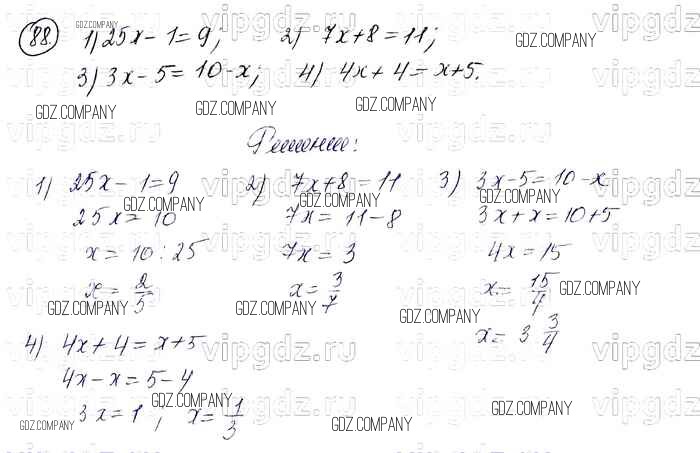 88. 1) 25x - 1 = 9; 2) 7x + 8 = 11;
3) 3x - 5 = 10 - x; 4) 4x + 4 = x + 5.
Решение:
1) 25x - 1 = 9
25x = 10
x = 10 : 25
x = 2/5
2) 7x + 8 = 11
7x = 11 - 8
7x = 3
x = 3/7
3) 3x - 5 = 10 - x
3x + x = 10 + 5
4x = 15
x = 15/4
x = 3 3/4
4) 4x + 4 = x + 5
4x - x = 5 - 4
3x = 1 ; x = 1/3
GDZ.COMPANY
vipgdz.ru